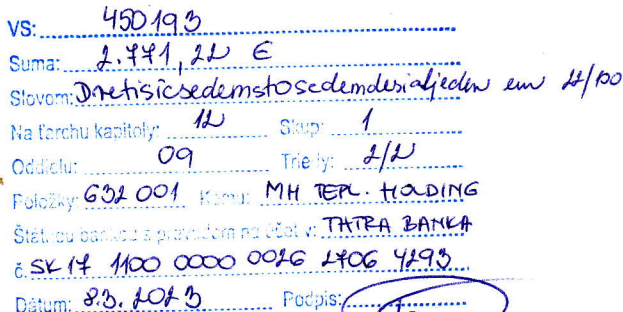 VS: 450193
Suma: 2.771,22 €
Slovom: Dvetisícsedemstosedemdesiatjeden eur 22/100
Na ťarchu kapitoly: 12 Skup: 1
Oddielu: 09 Triedy: 2/2
Položky: 632 001 Komu: MH TEPL. HOLDING
Štátnou bankou s prevodom na účet v: TATRA BANKA
č. SK17 1100 0000 0026 2706 4293
Dátum: 8.3.2023 Podpis: